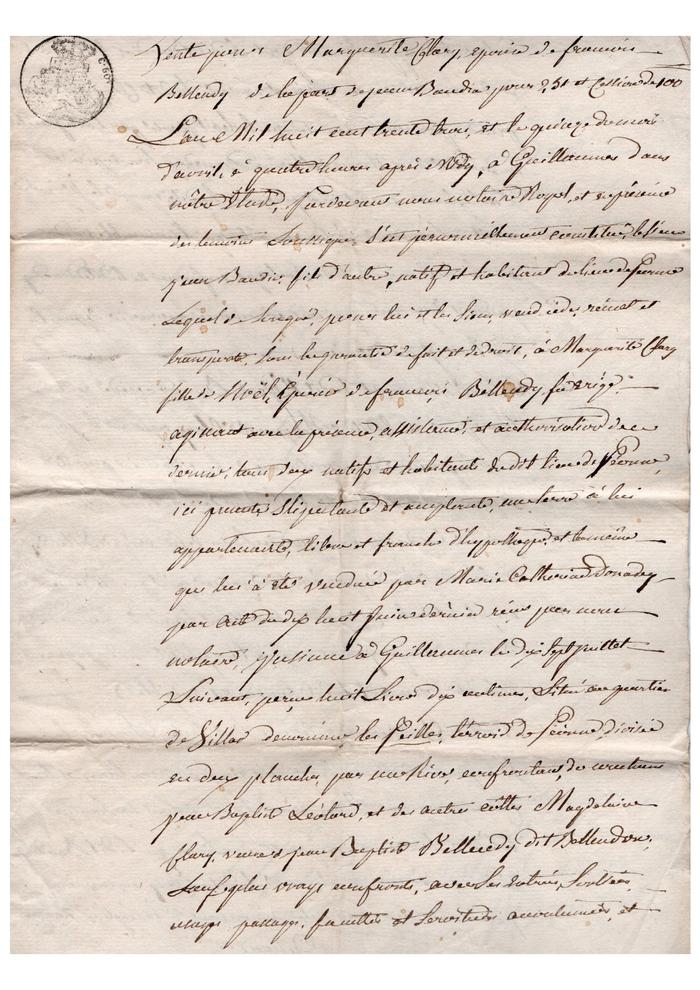 C. 60
Vente pour Marguerite Clary, épouse de francois
Bellendy de la part de jean Baudin pour
L'an Mil huit cent trente trois, et le quinze du mois
d'avril, à quatre heures après Midy, à Guillaumes dans
nôtre Etude, Pardevant nous notaire Royal, et en présence
des temoins Soussignés S'est personnellement constitué, le Sieur
jean Baudin, fils d'autre, natif et habitant du lieu de Péonne
Lequel de Son gré, pour lui et les Siens, vend cède, rémet et
transporte, Sous la garantie de fait et de droit, à Marguerite Clary
fille de Noël, Épouse de francois Bellendy,
agissant avec la présence, assistance, et authorisation de ce
dernier, tous deux natifs et habitants du dit lieu de Péonne,
ici présente Stipulante et acceptante, une terre à lui
appartenante, libre et franche d'hypotheque, et la même
qui lui à été vendue par Marie Catherine Donadey
par acte du dix huit Juin dernier réçu par nous
notaire, jnsinué à Guillaumes le dix Sept juillet
Suivant, Livres dix centimes, Située au quartier
de Villar denommé, les Peilles, terroir de Péonne, divisée
en deux planches, par une Rive, confrontant, de
jean Baptiste Léotard, et des autres côttés Magdelaine
Clary, veuve de jean Baptiste Bellendy dit Bellendon,
Sauf plus vrays confronts, avec Ses entrées, Sorties,
usages, passages, facultés et Servitudes accoutumées, et